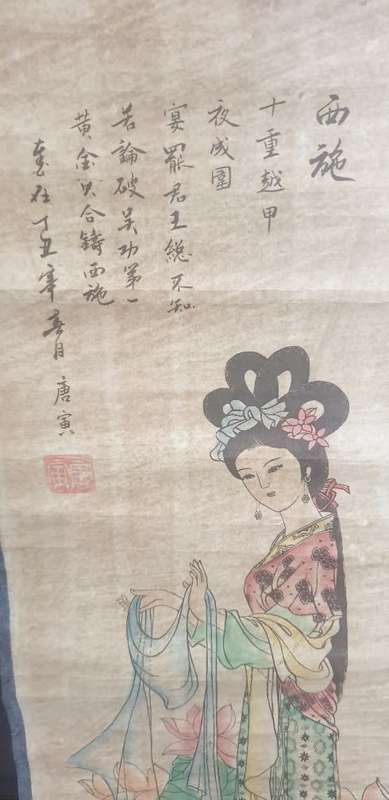 西施
十重越甲
夜成圍
宴罷君王總不知
若論破吳功第一
黃金只合鑄西施
在丁丑春月 唐寅